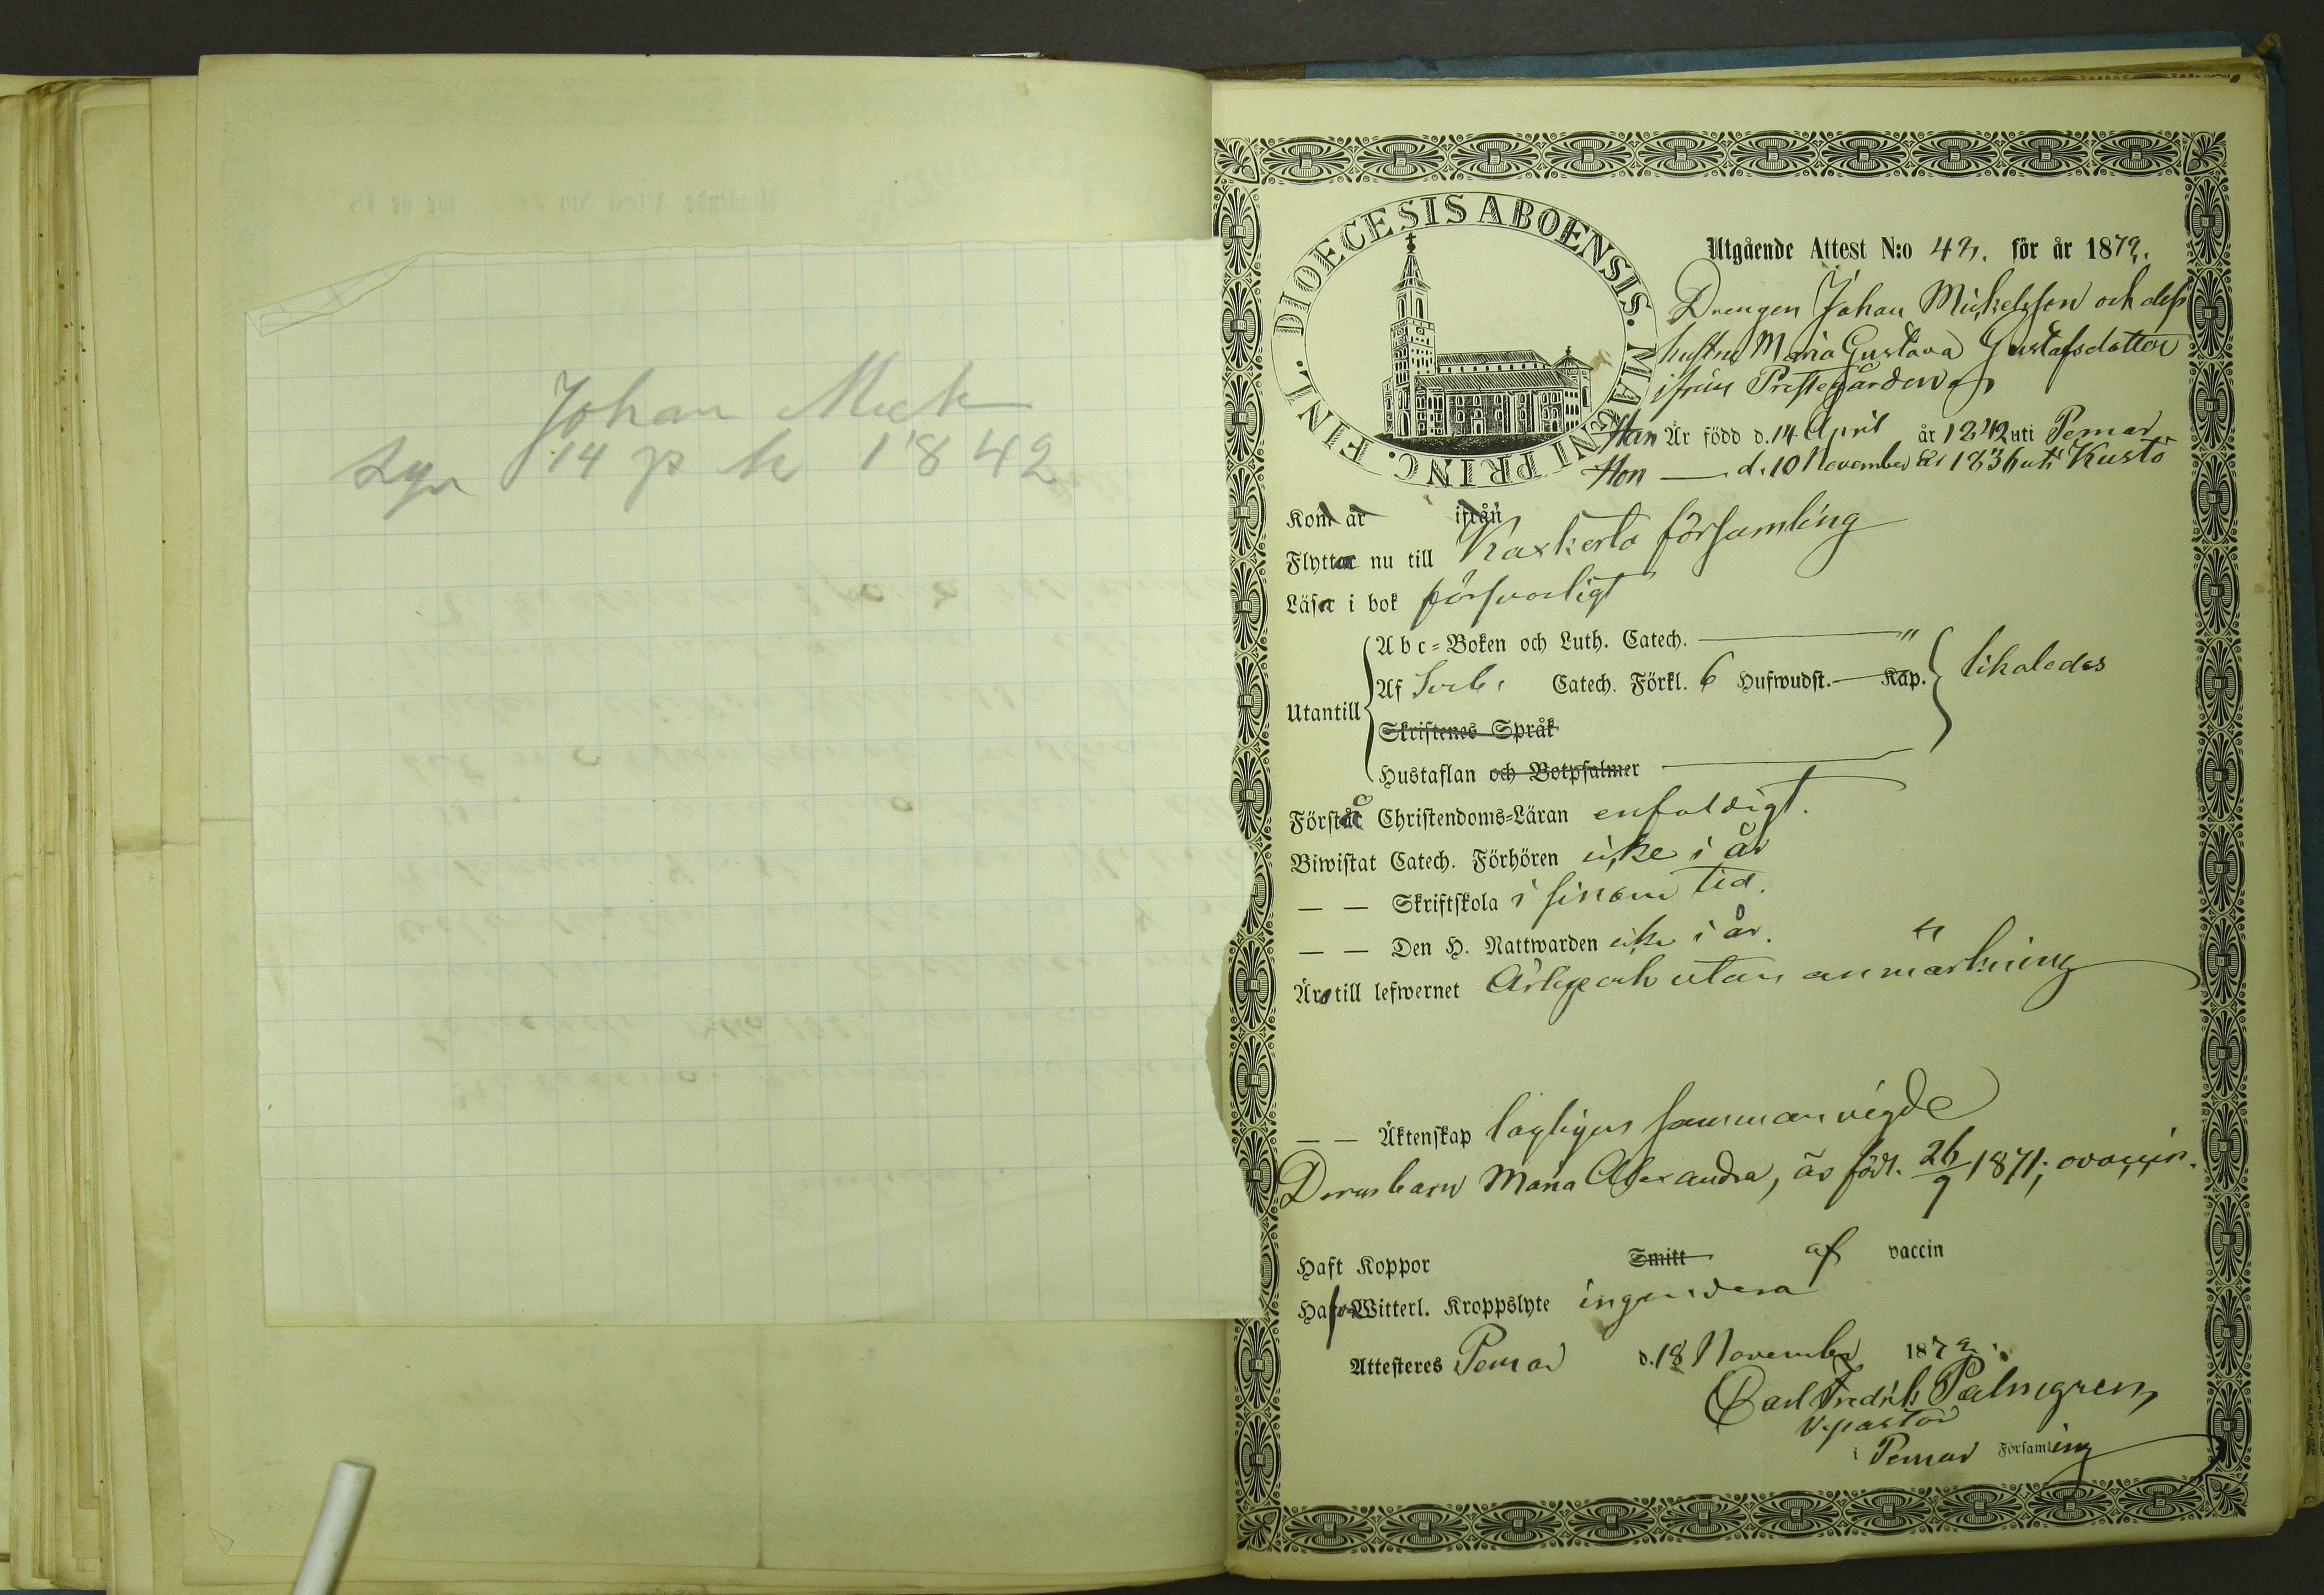 Johan Mick
14 p k 1842
DIOECESIS ABOENSIS. MAGNI PRINC. FINL.
Utgående Attest N:o 42. för år 1872.
Drengen Johan Mickelsson och dess
hustru Maria Gustava Gustafsdotter
ifrån Prestegården
Han Är född d. 14 April år 1842 uti Pemar
Hon — d. 10 November år 1836 uti Kustö
Kom år ifrån
Flytta nu till Kakskerta församling
Läsa i bok försvarligt
Utantill
Abc-Boken och Luth. Catech. — "
Af Sveb: Catech. Förkl. 6 Hufwudst. — Kap.
likaledes
Skriftenes Språk
Hustaflan och Botpsalmer
Förstå Christendoms-Läran enfaldigt.
Biwistat Catech. Förhören icke i år
— — Skriftskola i sinom tid.
— — Den H. Nattwarden icke i år.
Äro till lefwernet ärlige och utan anmärkning
— — Äktenskap lagligen sammanvigde
Deras barn Maria Alexandra, är född 26/9 1871; ovaccin.
Haft Koppor Smitt af vaccin
Hafva Witterl. Kroppslyte ingendera
Attesteres Pemar d. 18 November 1872.
Carl Fredrik Palmgren
V. pastor
i Pemar Församling